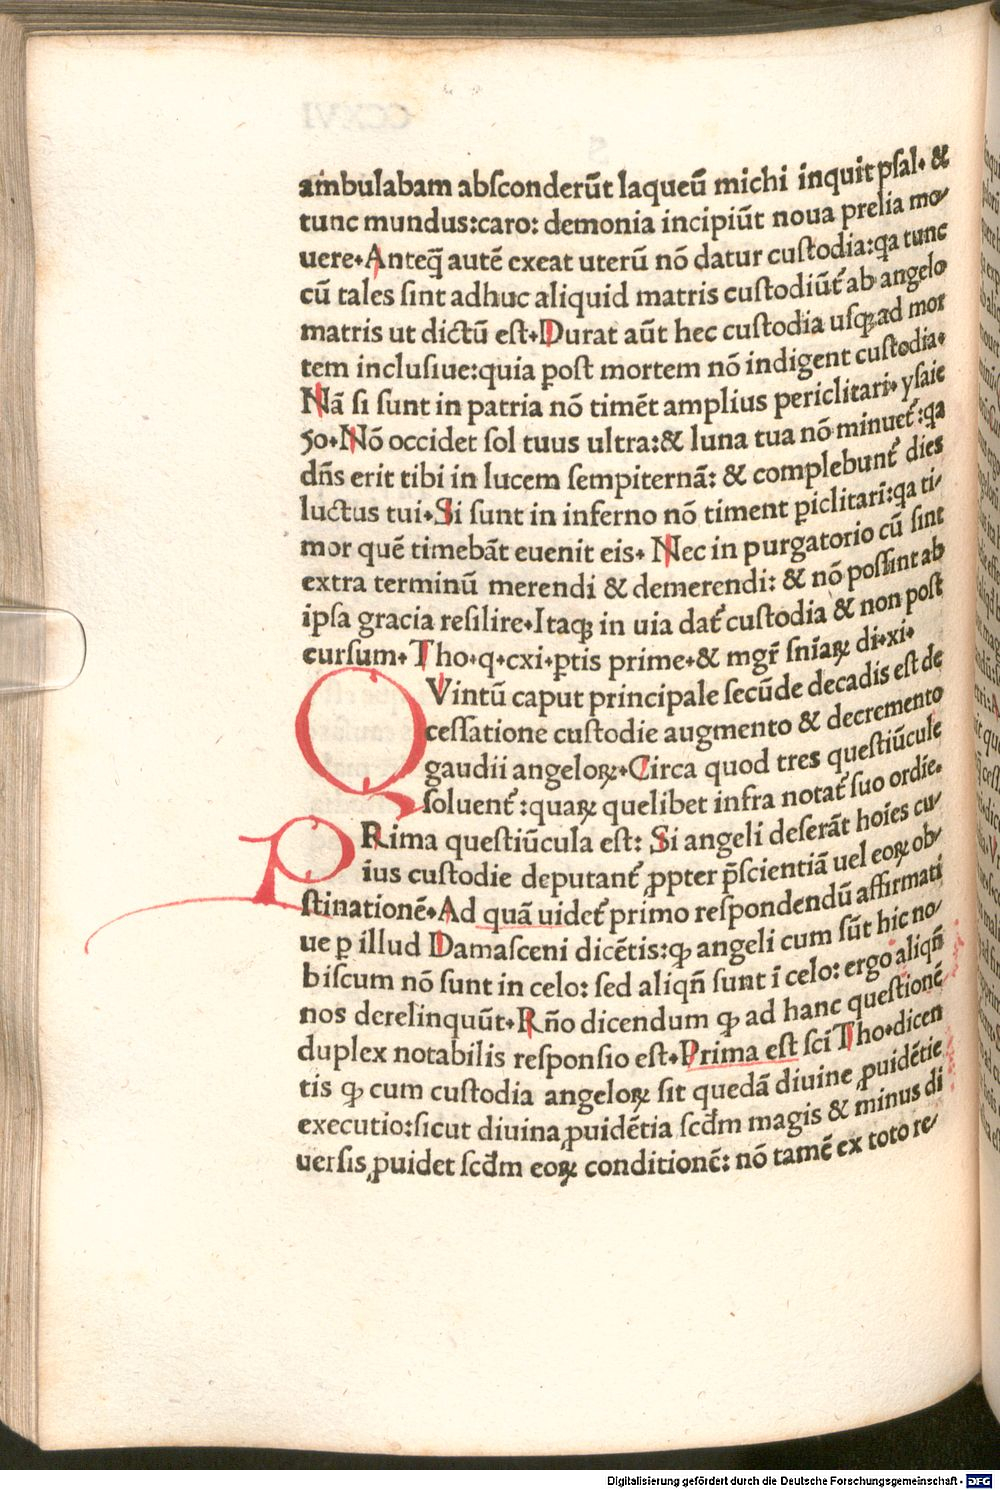 ambulabam absconderūt laqueū michi inquit psal. &
tunc mundus:caro: demonia incipiūt noua prelia mo/
uere. Anteq̄ autē exeat uterū nō datur custodia:qa tunc
cū tales sint adhuc aliquid matris custodiūt᷑ ab angelo
matris ut dictū est. Durat aūt hec custodia usqꝫ ad mor
tem inclusiue:quia post mortem nō indigent custodia.
Nā si sunt in patria nō timēt amplius periclitari. ysaie
50. Nō occidet sol tuus ultra:& luna tua nō minuet᷑:qa
dn̄s erit tibi in lucem sempiternā: & complebunt᷑ dies
luctus tui. Si sunt in inferno nō timent ꝑiclitari:qa ti/
mor quē timebāt euenit eis. Nec in purgatorio cū sint
extra terminū merendi & demerendi: & nō possint ab
ipsa gracia resilire. Itaqꝫ in uia dat᷑ custodia & non post
cursum. Tho. q. cxi. ꝑtis prime. & mgr̄ sn̄iaꝝ di. xi.
QVintū caput principale secūde decadis est de
cessatione custodie augmento & decremento
gaudii angeloꝝ. Circa quod tres questiūcule
soluent᷑:quaꝝ quelibet infra notat᷑ suo ordīe.
PRima questiūcula est: Si angeli deserāt hoīes cu/
ius custodie deputant᷑ ꝓpter p̄scientiā uel eoꝝ ob/
stinationē. Ad quā uidet᷑ primo respondendū affirmati
ue ꝑ illud Damasceni dicētis:ꝙ angeli cum sūt hic no/
biscum nō sunt in celo: sed aliqn̄ sunt ī celo: ergo aliqn̄
nos derelinquūt. Rn̄o dicendum ꝙ ad hanc questionē
duplex notabilis responsio est. Prima est sci Tho. dicen
tis ꝙ cum custodia angeloꝝ sit quedā diuine ꝓuidētie
executio:sicut diuina ꝓuidētia scd̄m magis & minus di
uersis ꝓuidet scd̄m eoꝝ conditionē: nō tamē ex toto re/
Digitalisierung gefördert durch die Deutsche Forschungsgemeinschaft - DFG